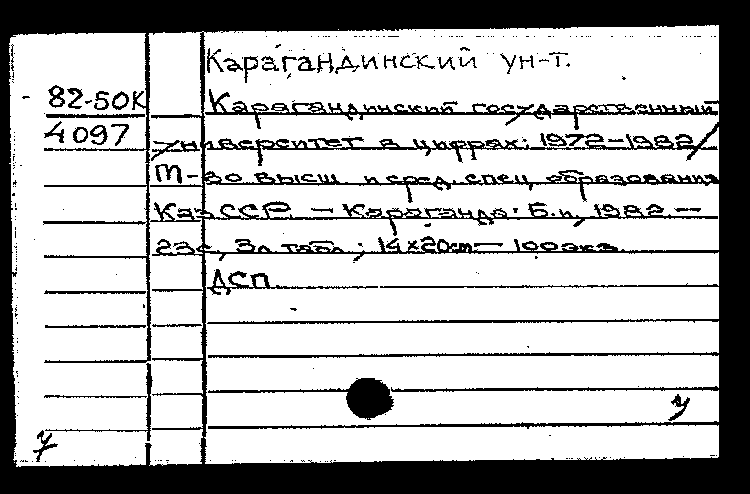 Карагандинский ун-т.
82-50К
4097
Карагандинский государственный
университет в цифрах: 1972-1982/
М-во высш. и сред. спец. образования
КазССР. — Караганда: Б.и, 1982. —
23с, 3л. табл.; 14х20см — 100экз.
ДСП.
у
у